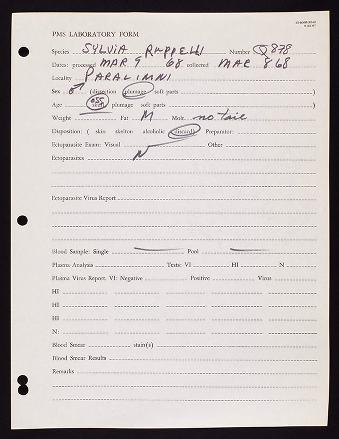 PMS LABORATORY FORM
Species SYLVIA RUPPELLI Number Q878
Dates: processed MAR 9 68 collected MAR 8 68
Locality PARALIMNI
Sex ♂ (dissection plumage soft parts )
Age ( plumage soft parts )
Weight Fat M Molt no tail
Disposition: ( skin skelton alcoholic discard) Preparator:
Ectoparasite Exam: Visual Other
Ectoparasites N
Ectoparasite Virus Report
Blood Sample: Single Pool
Plasma Analysis Tests: VI HI N
Plasma Virus Report. VI: Negative Positive Virus
HI
HI
HI
N:
Blood Smear stain(s)
Blood Smear Results
Remarks